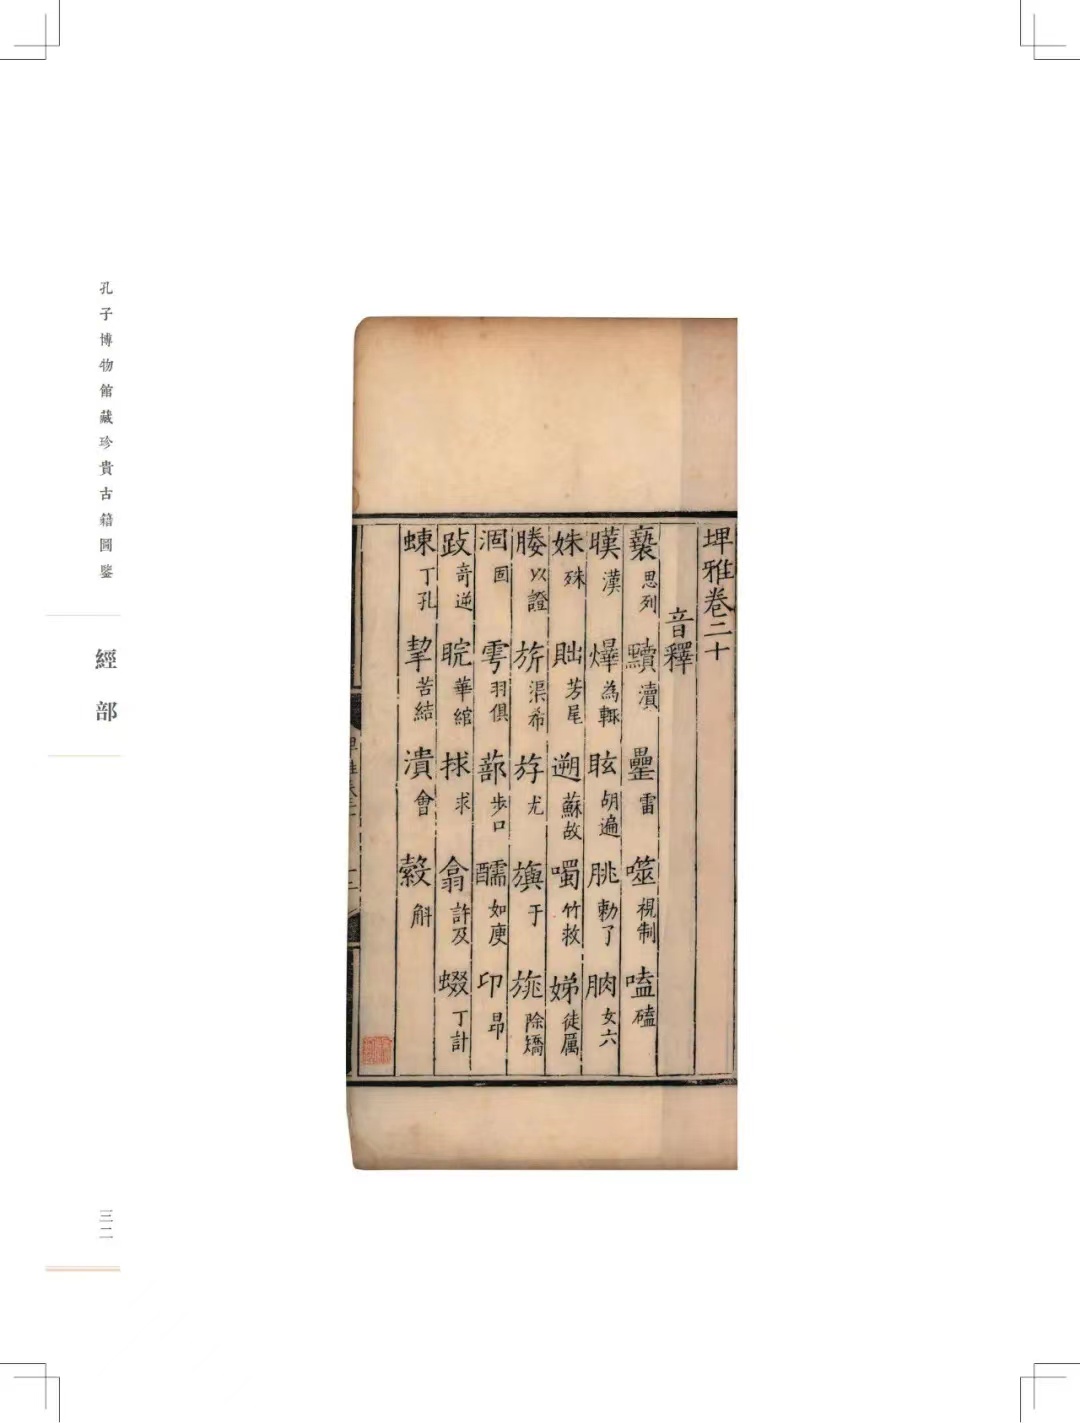 孔子博物館藏珍貴古籍圖鑒
經部
三二
埤雅卷二十
音釋
褻思列 黷瀆 罍雷 噬視制 嗑磕
暵漢 爗為輒 眩胡遍 朓勅了 朒女六
姝殊 朏芳尾 遡蘇故 噣竹救 娣徒厲
媵以證 旂渠希 斿尤 旟于 旐除矯
涸固 雩羽俱 蔀步口 醹如庾 卬昂
跂奇逆 睆華綰 捄求 翕許及 蝃丁計
蝀丁孔 挈苦結 潰會 縠斛